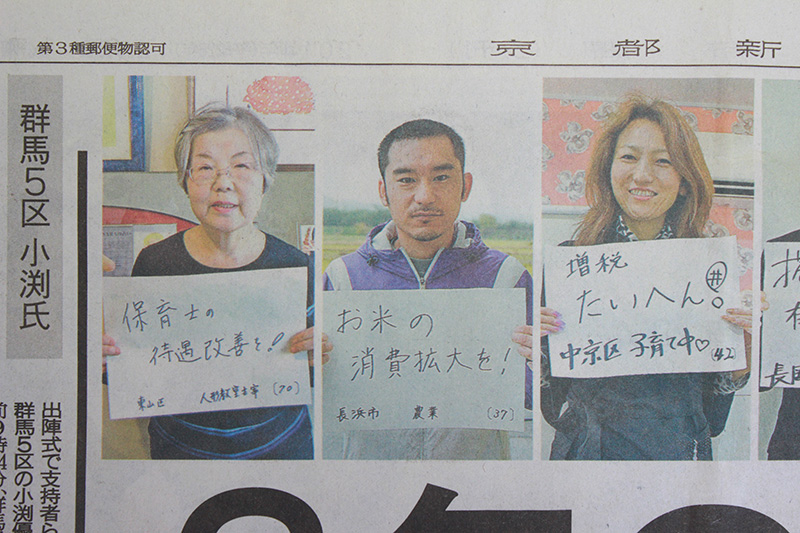 第3種郵便物認可
京都新
群馬5区 小渕氏
出陣式で支持者ら
群馬5区の小渕優
保育士の
待遇改善を!
東山区 人形教室主宰 (70)
お米の
消費拡大を!
長浜市 農業 (37)
増税
たいへん!
中京区 子育て中♡ (42)